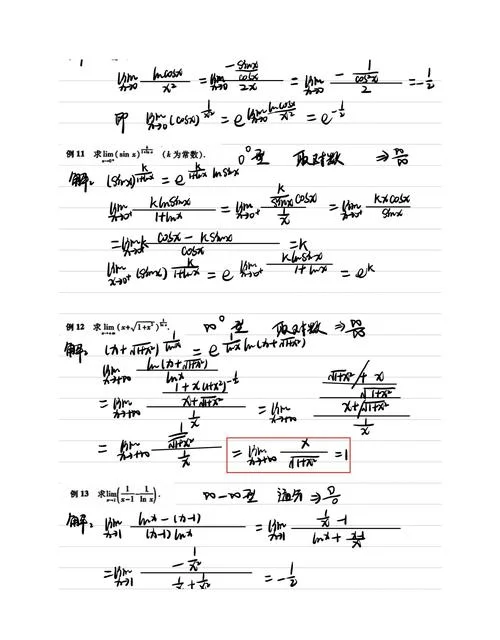 lim x→0 lncosx/x² = lim x→0 (-sinx/cosx)/2x = lim x→0 (-1/cos²x)/2 = -1/2
即 lim x→0 (cosx)^(1/x²) = e^(lim x→0 lncosx/x²) = e^(-1/2)
例 11 求 lim x→0⁺ (sin x)^(k/(1+ln x)) (k 为常数). 0⁰型 取对数 ⇒ ∞/∞
解: (sinx)^(k/(1+lnx)) = e^(k/(1+lnx) lnsinx)
lim x→0⁺ klnsinx/(1+lnx) = lim x→0⁺ (k/sinx cosx)/(1/x) = lim x→0⁺ kxcosx/sinx
= lim x→0⁺ k (cosx - xsinx)/cosx = k
lim x→0⁺ (sinx)^(k/(1+lnx)) = e^(lim x→0⁺ klnsinx/(1+lnx)) = e^k
例 12 求 lim x→+∞ (x+√(1+x²))^(1/ln x). ∞⁰型 取对数 ⇒ ∞/∞
解: (x+√(1+x²))^(1/lnx) = e^(1/lnx ln(x+√(1+x²)))
lim x→+∞ ln(x+√(1+x²))/lnx
= lim x→+∞ ((1+x(1+x²)^(-1/2))/(x+√(1+x²)))/(1/x) = lim x→+∞ (((√(1+x²)+x)/√(1+x²))/(x+√(1+x²)))/(1/x)
= lim x→+∞ (1/√(1+x²))/(1/x) = lim x→+∞ x/√(1+x²) = 1
例 13 求 lim x→1 (1/(x-1) - 1/ln x). ∞-∞型 通分 ⇒ 0/0
解: lim x→1 (lnx-(x-1))/((x-1)lnx) = lim x→1 (1/x - 1)/(lnx + (x-1)/x)
= lim x→1 (-1/x²)/(1/x + 1/x²) = -1/2